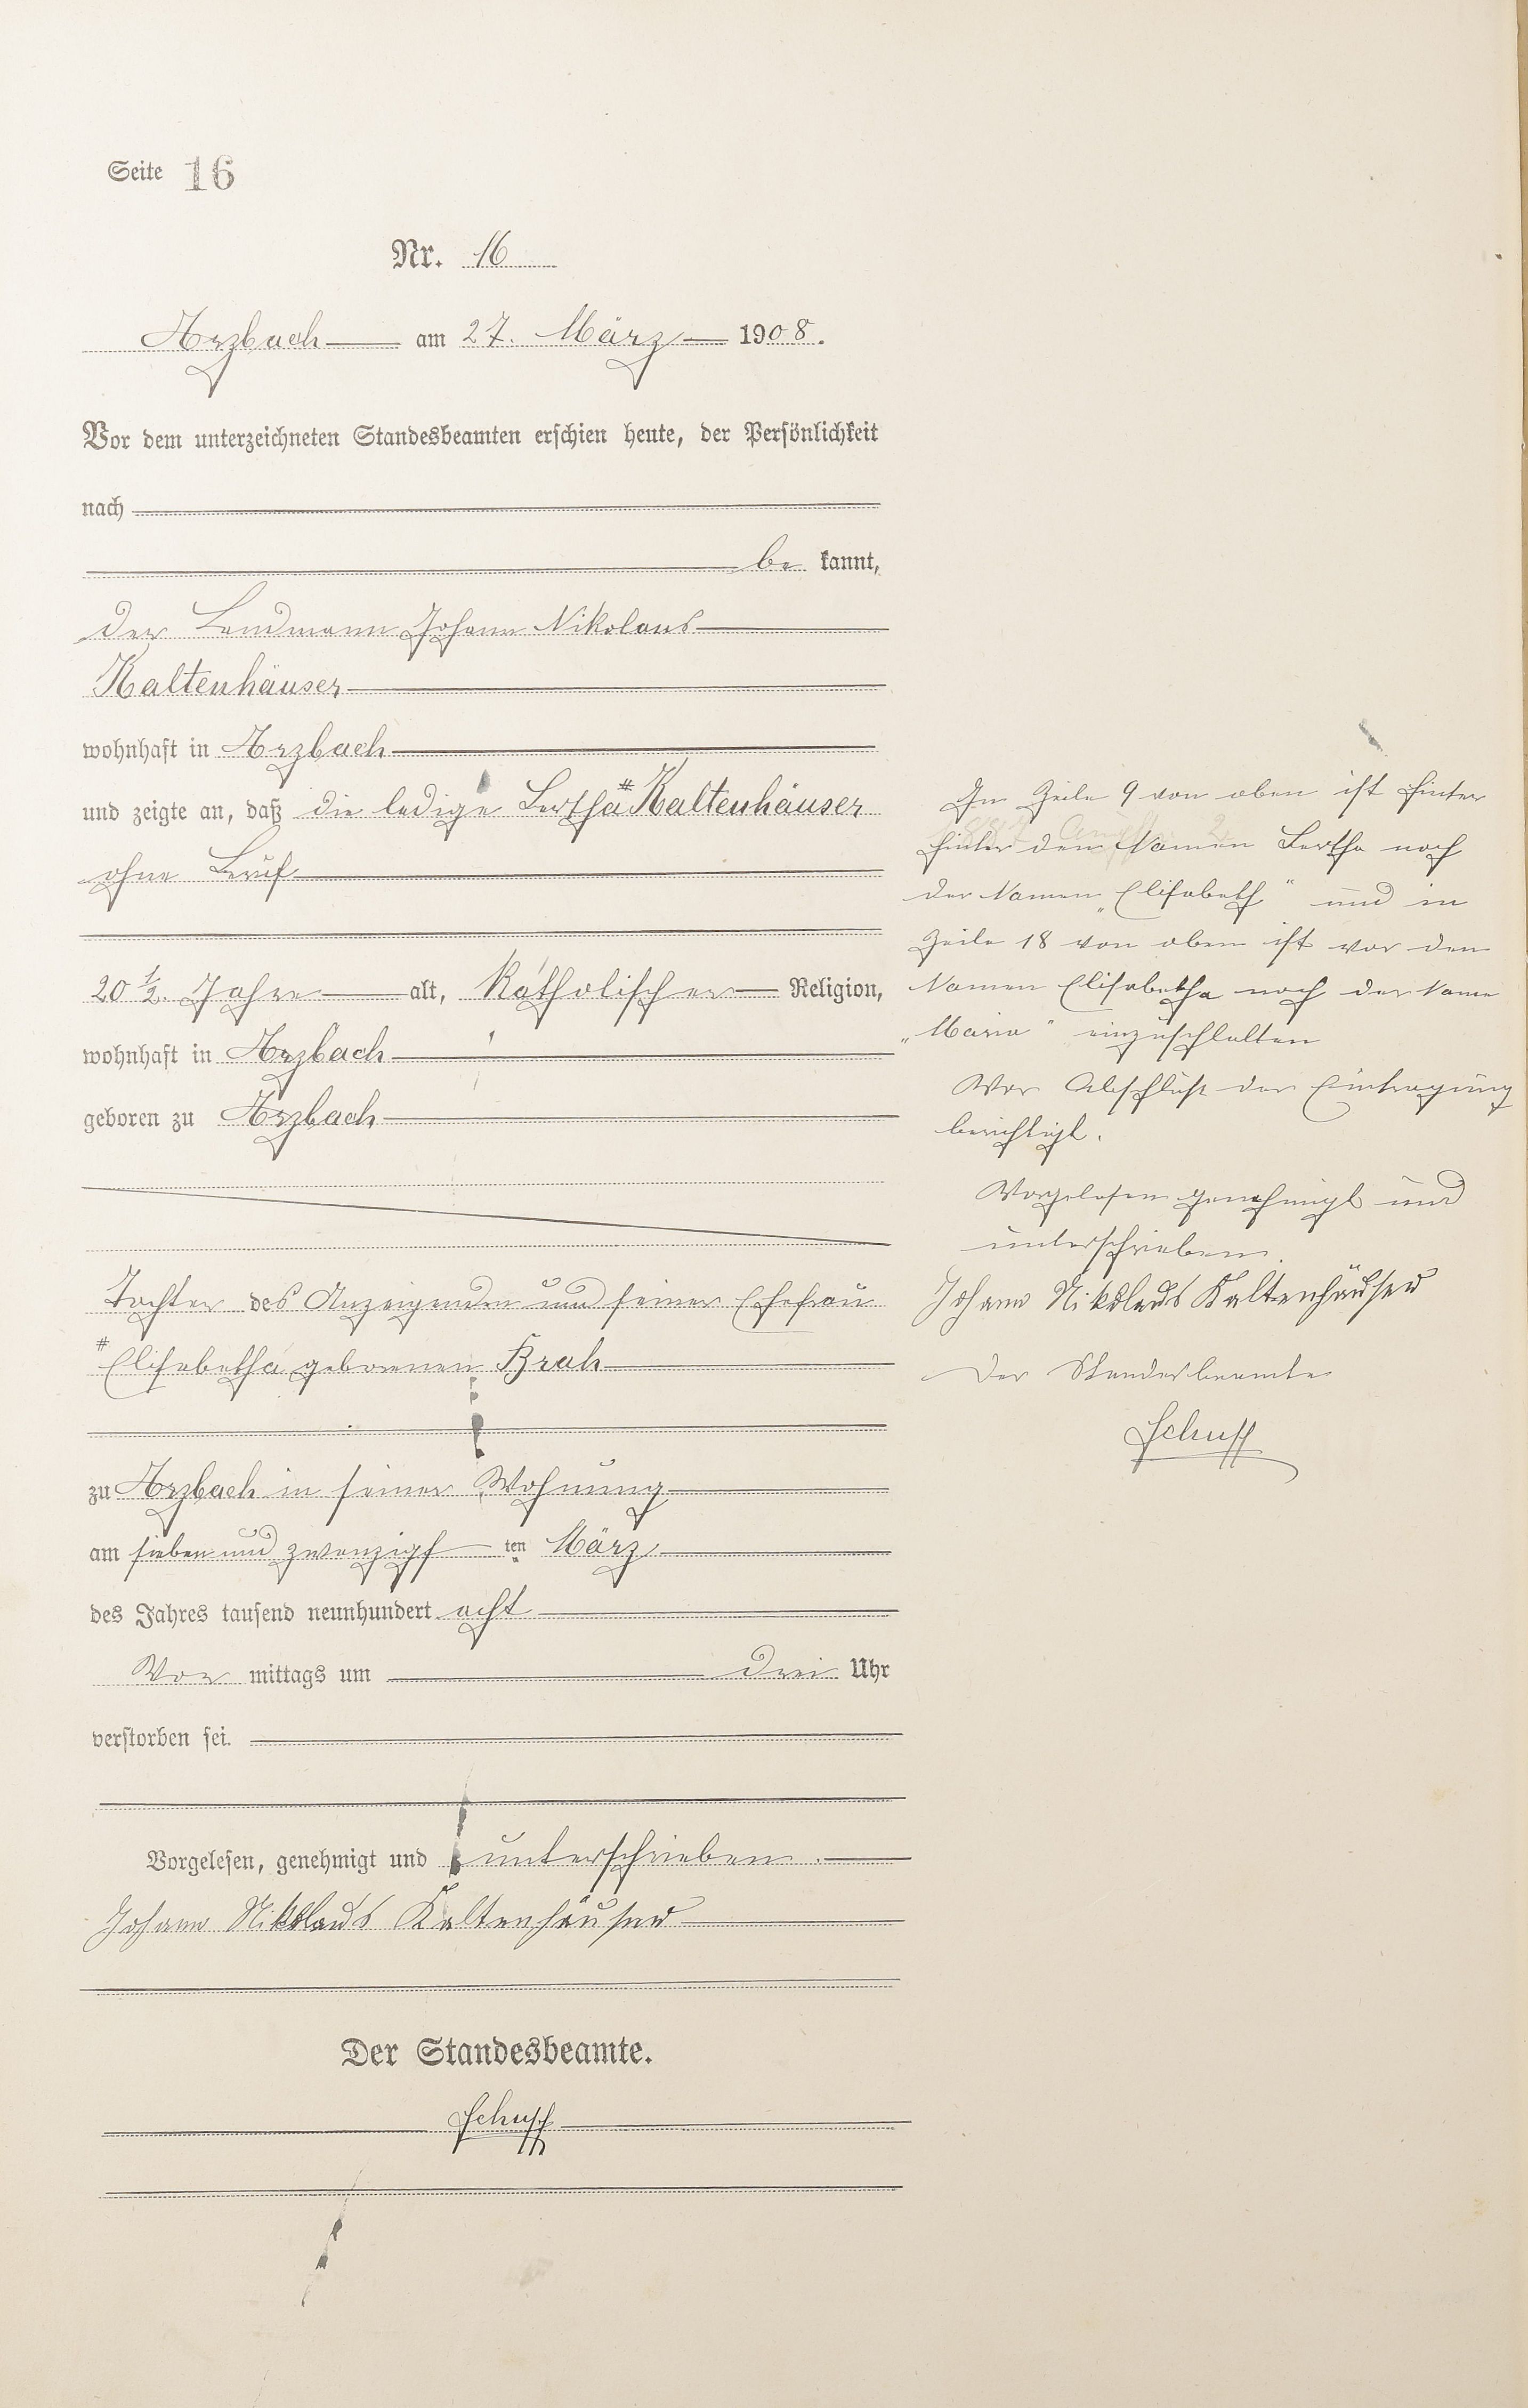 Seite 16
Nr. 16
Arzbach am 27. März 1908.
Vor dem unterzeichneten Standesbeamten erschien heute, der Persönlichkeit
nach
be kannt,
der Landmann Johann Nikolaus
Kaltenhäuser
wohnhaft in Arzbach
und zeigte an, daß die ledige Bertha # Kaltenhäuser
ohne Beruf
20 1/2. Jahre alt, Katholischer Religion,
wohnhaft in Arzbach
geboren zu Arzbach
Tochter des Anzeigenden und seiner Ehefrau
# Elisabetha geborenen Brah
zu Arzbach in seiner Wohnung
am sieben und zwanzigs ten März
des Jahres tausend neunhundert acht
Vor mittags um drei Uhr
verstorben sei.
Vorgelesen, genehmigt und unterschrieben.
Johann Nikolaus Kaltenhäuser
Der Standesbeamte.
Schupp
In Zeile 9 von oben ist hinter
hinter dem Namen Bertha noch
der Namen „Elisabeth“ und in
Zeile 18 von oben ist vor den
Namen Elisabetha noch der Name
„Maria“ einzuschlalten
Vor Abschluß der Eintragung
berichtigt.
Vorgelesen genehmigt und
unterschrieben.
Johann Nikolaus Kaltenhäuser
Der Standesbeamte
Schupp